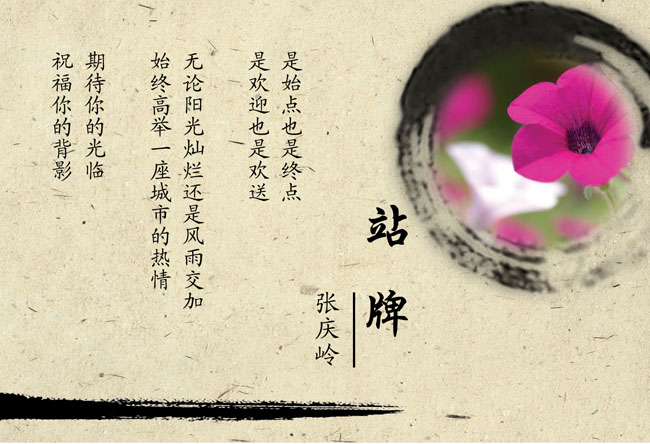 站牌
张庆岭
是始点也是终点
是欢迎也是欢送
无论阳光灿烂还是风雨交加
始终高举一座城市的热情
期待你的光临
祝福你的背影